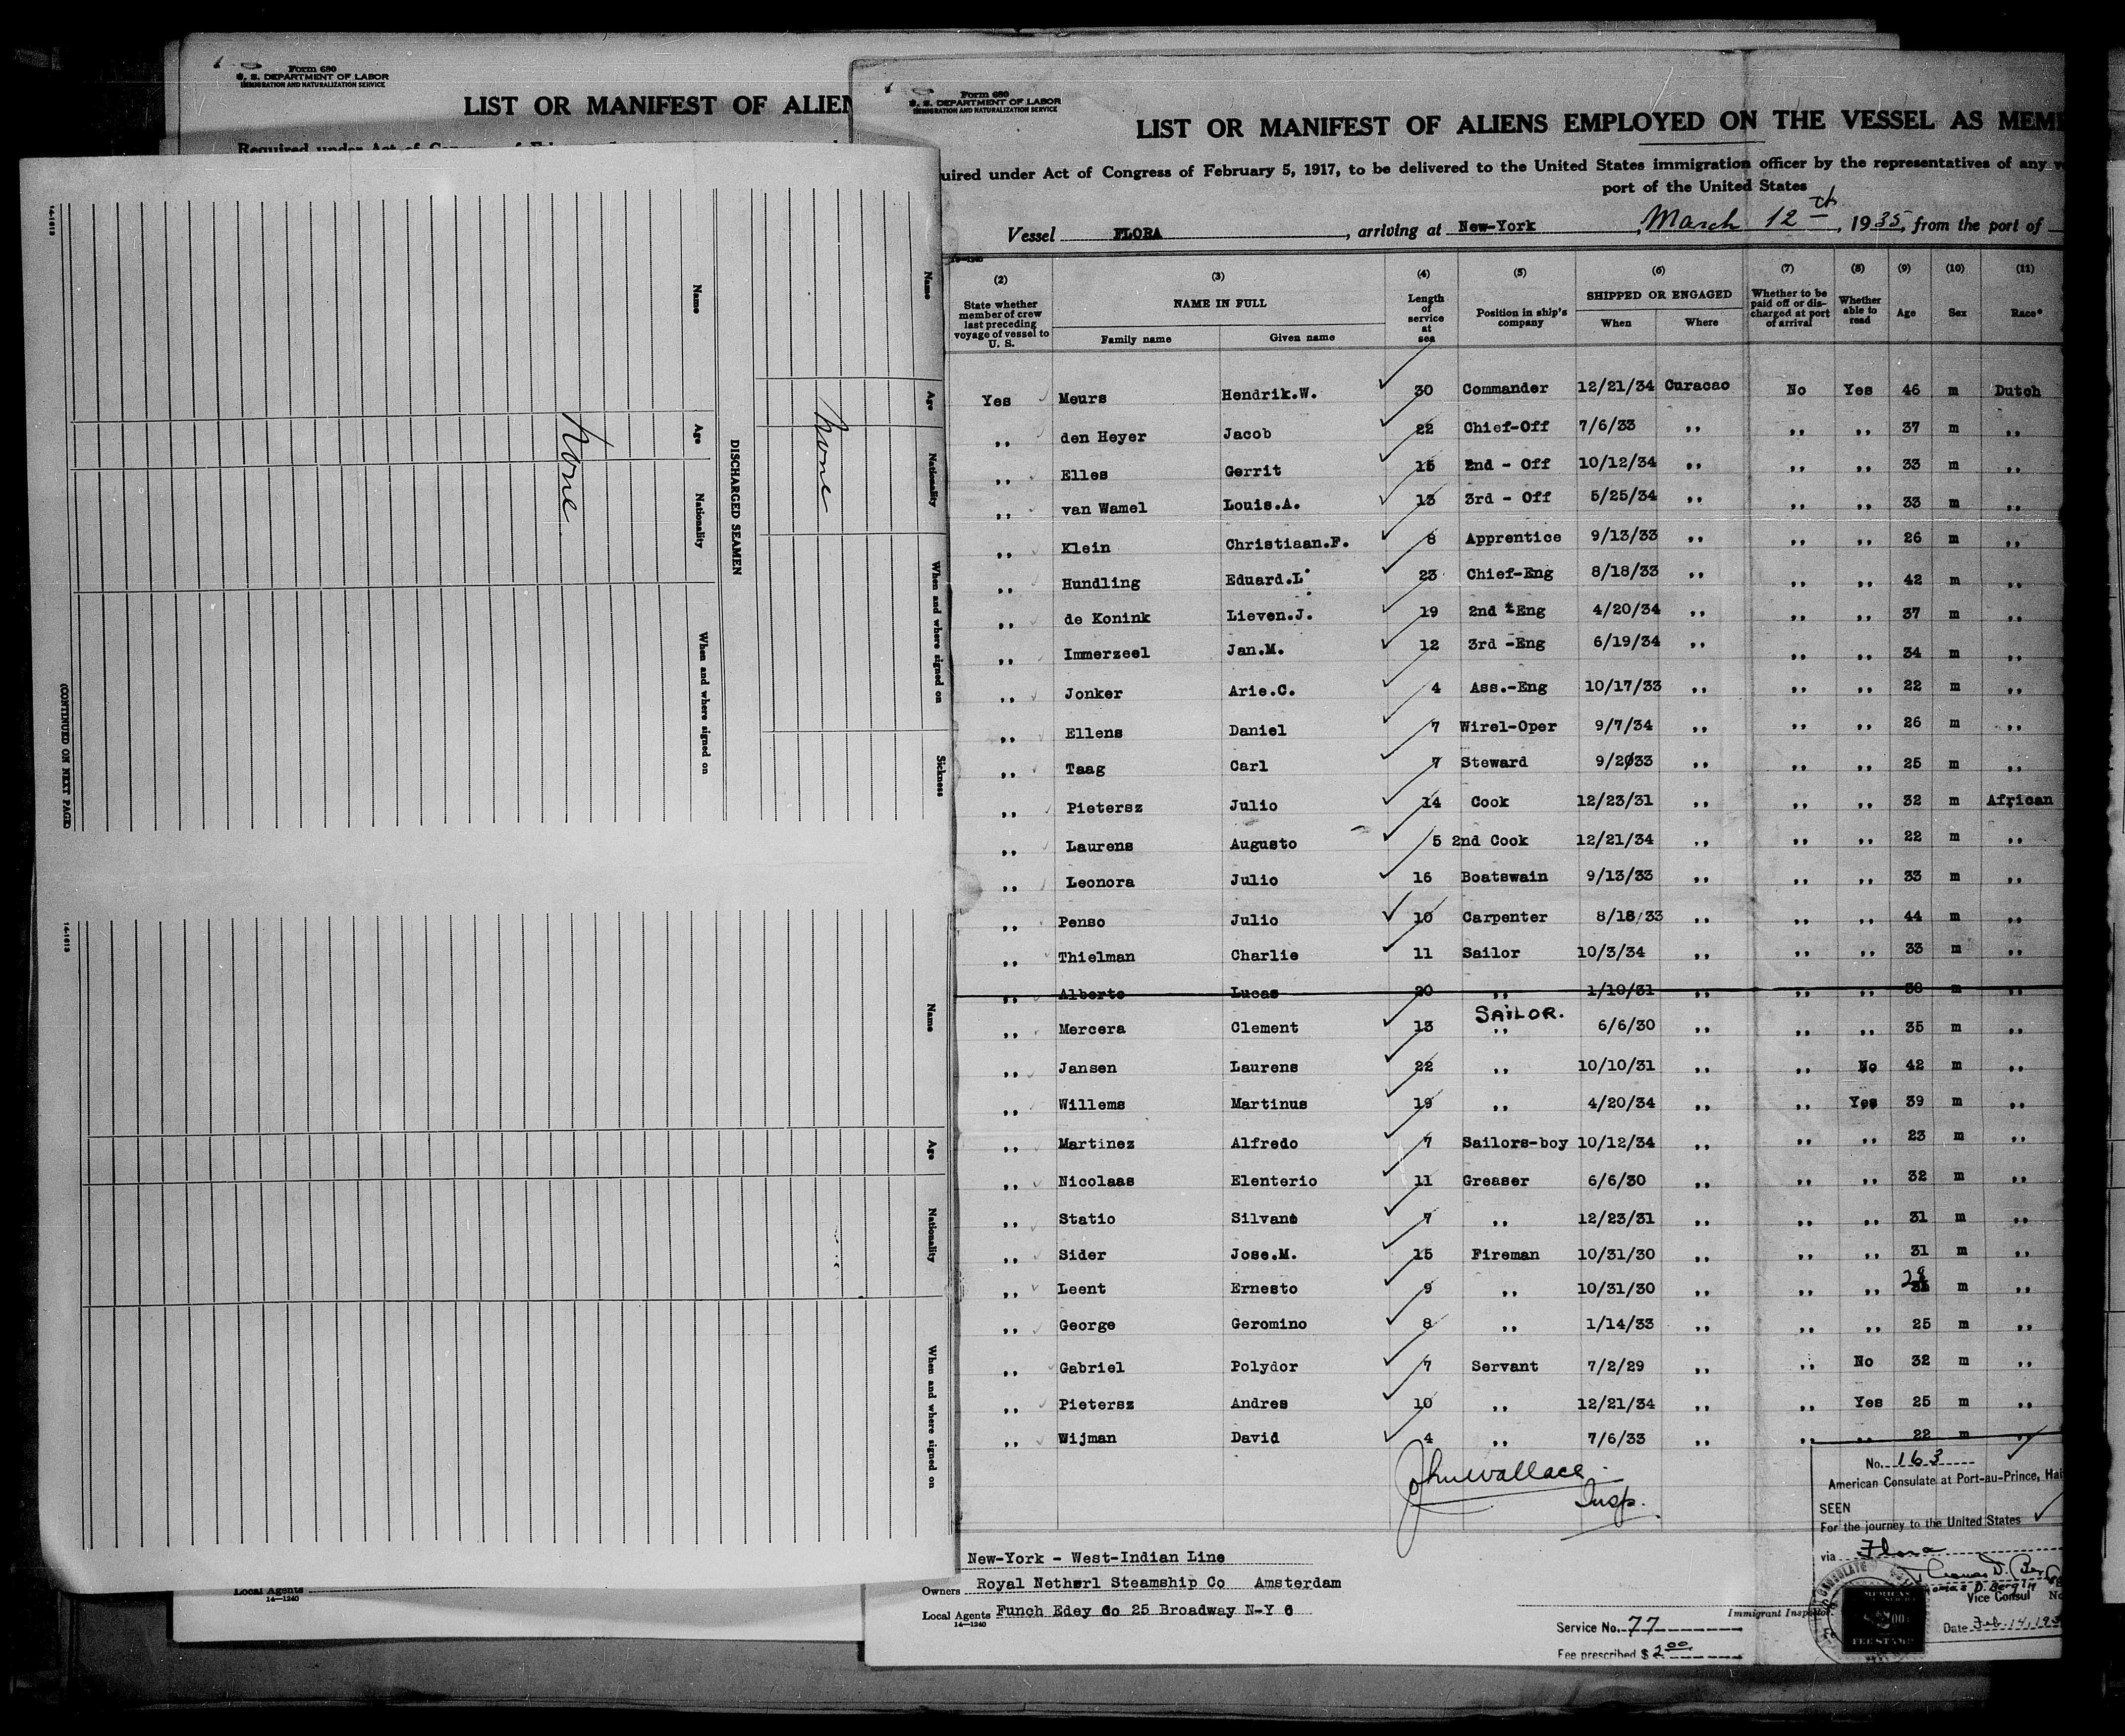 Form 680
U. S. DEPARTMENT OF LABOR
IMMIGRATION AND NATURALIZATION SERVICE
LIST OR MANIFEST OF ALIEN
Required under Act of Congress of
14-1613
Name Age Nationality When and where signed on Sickness
None
DISCHARGED SEAMEN
Name Age Nationality When and where signed on
None
(CONTINUED ON NEXT PAGE)
14-1613
Name Age Nationality When and where signed on
Local Agents
14—1240
Form 680
U. S. DEPARTMENT OF LABOR
IMMIGRATION AND NATURALIZATION SERVICE
LIST OR MANIFEST OF ALIENS EMPLOYED ON THE VESSEL AS MEM
uired under Act of Congress of February 5, 1917, to be delivered to the United States immigration officer by the representatives of any
port of the United States
Vessel FLORA, arriving at New-York, March 12th, 1935, from the port of
14—1240
(2) (3) (4) (5) (6) (7) (8) (9) (10) (11)
State whether member of crew last preceding voyage of vessel to U. S. NAME IN FULL Family name Given name Length of service at sea Position in ship's company SHIPPED OR ENGAGED When Where Whether to be paid off or discharged at port of arrival Whether able to read Age Sex Race*
Yes Meurs Hendrik.W. 30 Commander 12/21/34 Curacao No Yes 46 m Dutch
,, den Heyer Jacob 22 Chief-Off 7/6/33 ,, ,, ,, 37 m ,,
,, Elles Gerrit 15 2nd - Off 10/12/34 ,, ,, ,, 33 m ,,
,, van Wamel Louis.A. 13 3rd - Off 5/25/34 ,, ,, ,, 33 m ,,
,, Klein Christiaan.F. 8 Apprentice 9/13/33 ,, ,, ,, 26 m ,,
,, Hundling Eduard.L. 23 Chief-Eng 8/18/33 ,, ,, ,, 42 m ,,
,, de Konink Lieven.J. 19 2nd -Eng 4/20/34 ,, ,, ,, 37 m ,,
,, Immerzeel Jan.M. 12 3rd -Eng 6/19/34 ,, ,, ,, 34 m ,,
,, Jonker Arie.C. 4 Ass.-Eng 10/17/33 ,, ,, ,, 22 m ,,
,, Ellens Daniel 7 Wirel-Oper 9/7/34 ,, ,, ,, 26 m ,,
,, Taag Carl 7 Steward 9/2033 ,, ,, ,, 25 m ,,
,, Pietersz Julio 14 Cook 12/23/31 ,, ,, ,, 32 m African
,, Laurens Augusto 5 2nd Cook 12/21/34 ,, ,, ,, 22 m ,,
,, Leonora Julio 16 Boatswain 9/13/33 ,, ,, ,, 33 m ,,
,, Penso Julio 10 Carpenter 8/18/33 ,, ,, ,, 44 m ,,
,, Thielman Charlie 11 Sailor 10/3/34 ,, ,, ,, 33 m ,,
,, Alberto Lucas 20 ,, 1/10/31 ,, ,, ,, 38 m ,,
SAILOR.
,, Mercera Clement 13 ,, 6/6/30 ,, ,, ,, 35 m ,,
,, Jansen Laurens 22 ,, 10/10/31 ,, ,, No 42 m ,,
,, Willems Martinus 19 ,, 4/20/34 ,, ,, Yes 39 m ,,
,, Martinez Alfredo 7 Sailors-boy 10/12/34 ,, ,, ,, 23 m ,,
,, Nicolaas Elenterio 11 Greaser 6/6/30 ,, ,, ,, 32 m ,,
,, Statio Silvano 7 ,, 12/23/31 ,, ,, ,, 31 m ,,
,, Sider Jose.M. 15 Fireman 10/31/30 ,, ,, ,, 31 m ,,
,, Leent Ernesto 9 ,, 10/31/30 ,, ,, ,, 29 m ,,
,, George Geromino 8 ,, 1/14/33 ,, ,, ,, 25 m ,,
,, Gabriel Polydor 7 Servant 7/2/29 ,, ,, No 32 m ,,
,, Pietersz Andres 10 ,, 12/21/34 ,, ,, Yes 25 m ,,
,, Wijman David 4 ,, 7/6/33 ,, ,, ,, 22 m ,,
John Wallace
Insp.
No. 163
American Consulate at Port-au-Prince, Hai
SEEN
For the journey to the United States
via Flora
Thomas D. Berg
Vice Consul
Date Feb. 14, 193
New-York - West-Indian Line
Owners Royal Netherl Steamship Co Amsterdam
Local Agents Funch Edey Co 25 Broadway N-Y C
14—1240
Immigrant Inspector.
Service No. 77
Fee prescribed $ 2.00
AMERICAN
$2.00
FEE STAMP